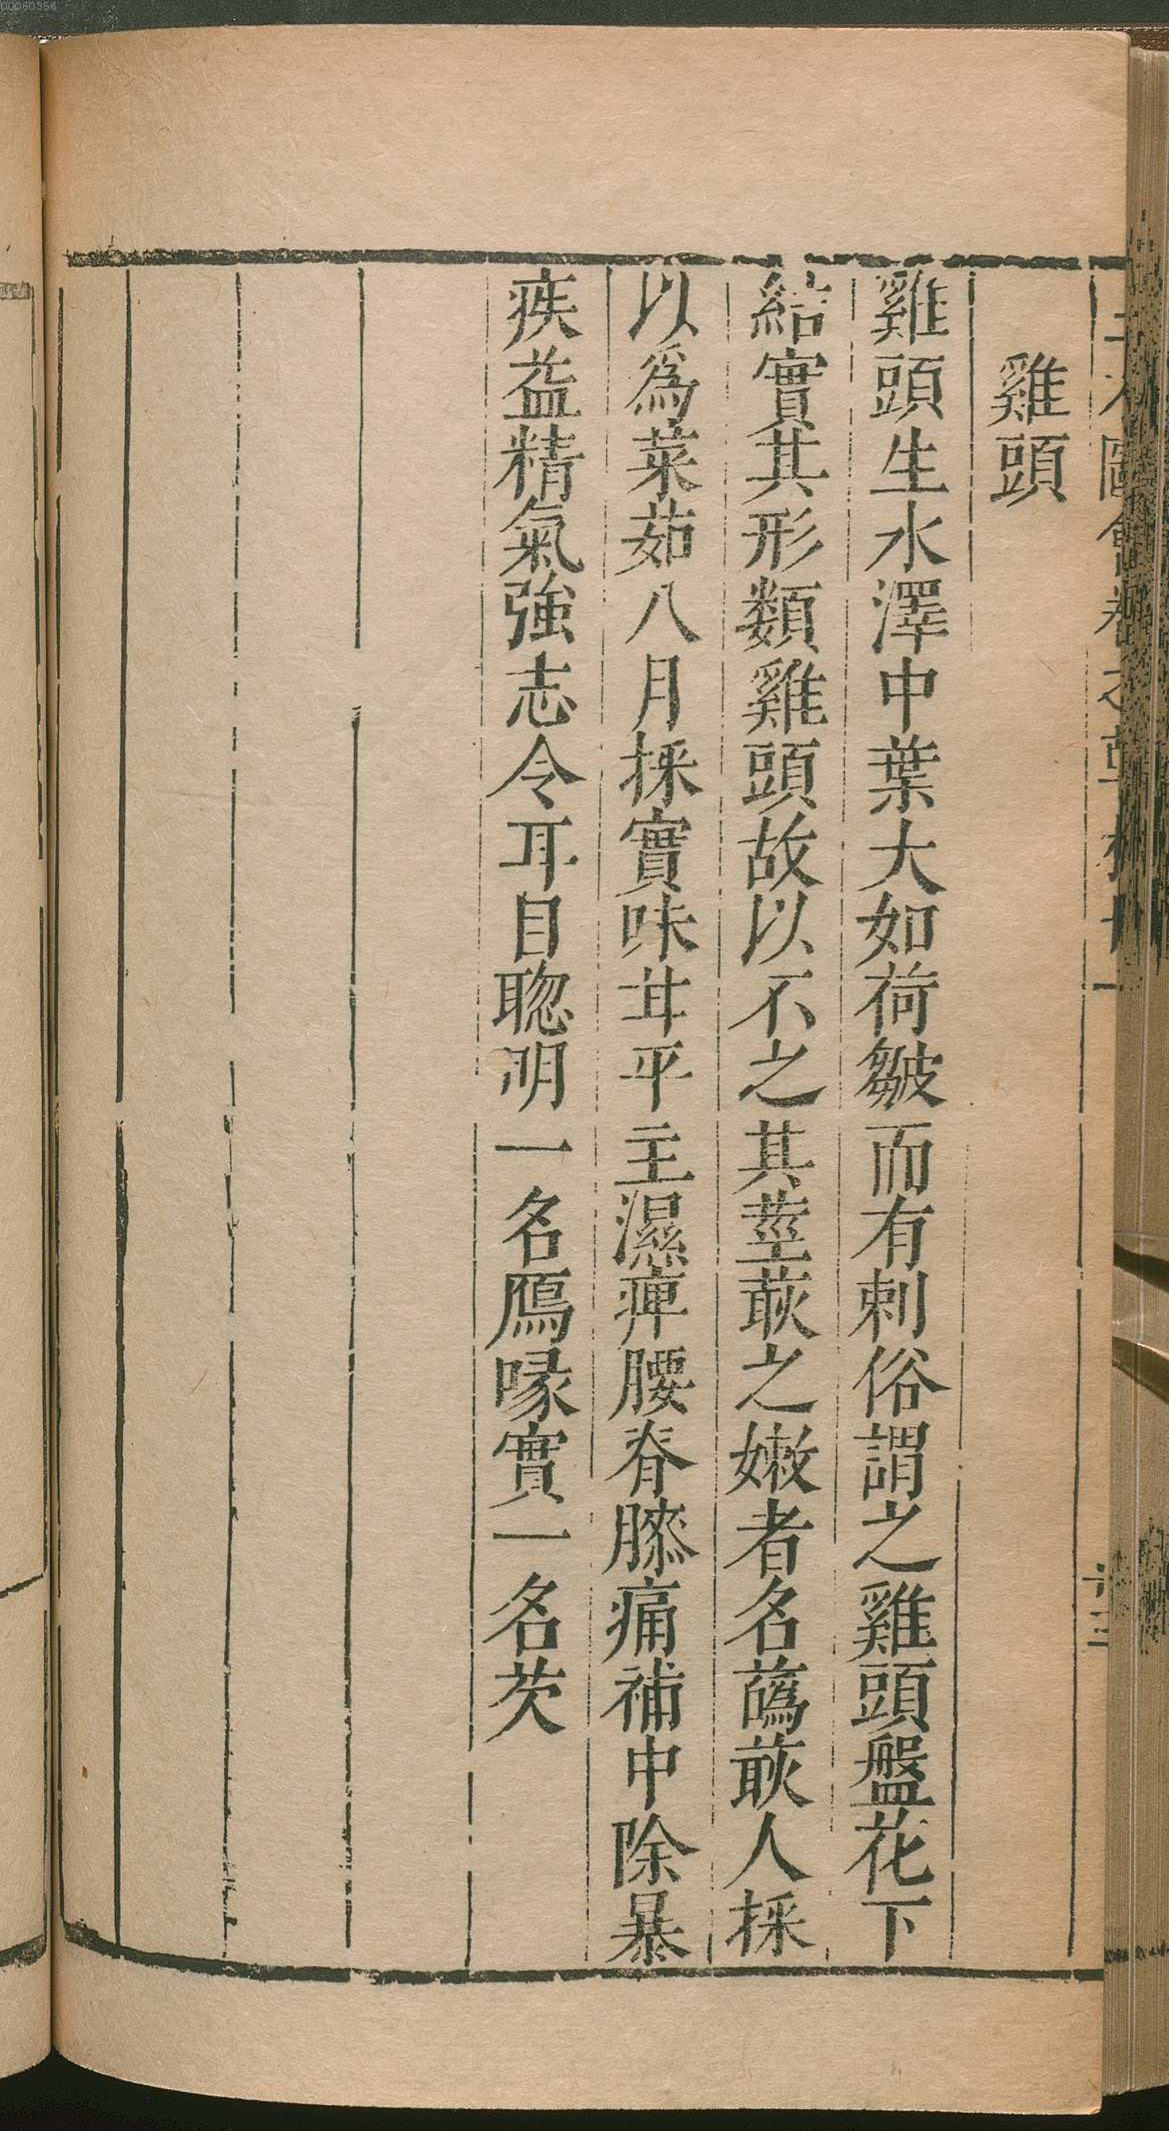 雞頭
雞頭生水澤中葉大如荷皺而有刺俗謂之雞頭盤花下
結實其形類雞頭故以不之其莖蔌之嫩者名蔿蔌人採
以爲菜茹八月採實味甘平主濕痺腰脊膝痛補中除暴
疾益精氣強志令耳目聰明一名鴈喙實一名芡
00060356